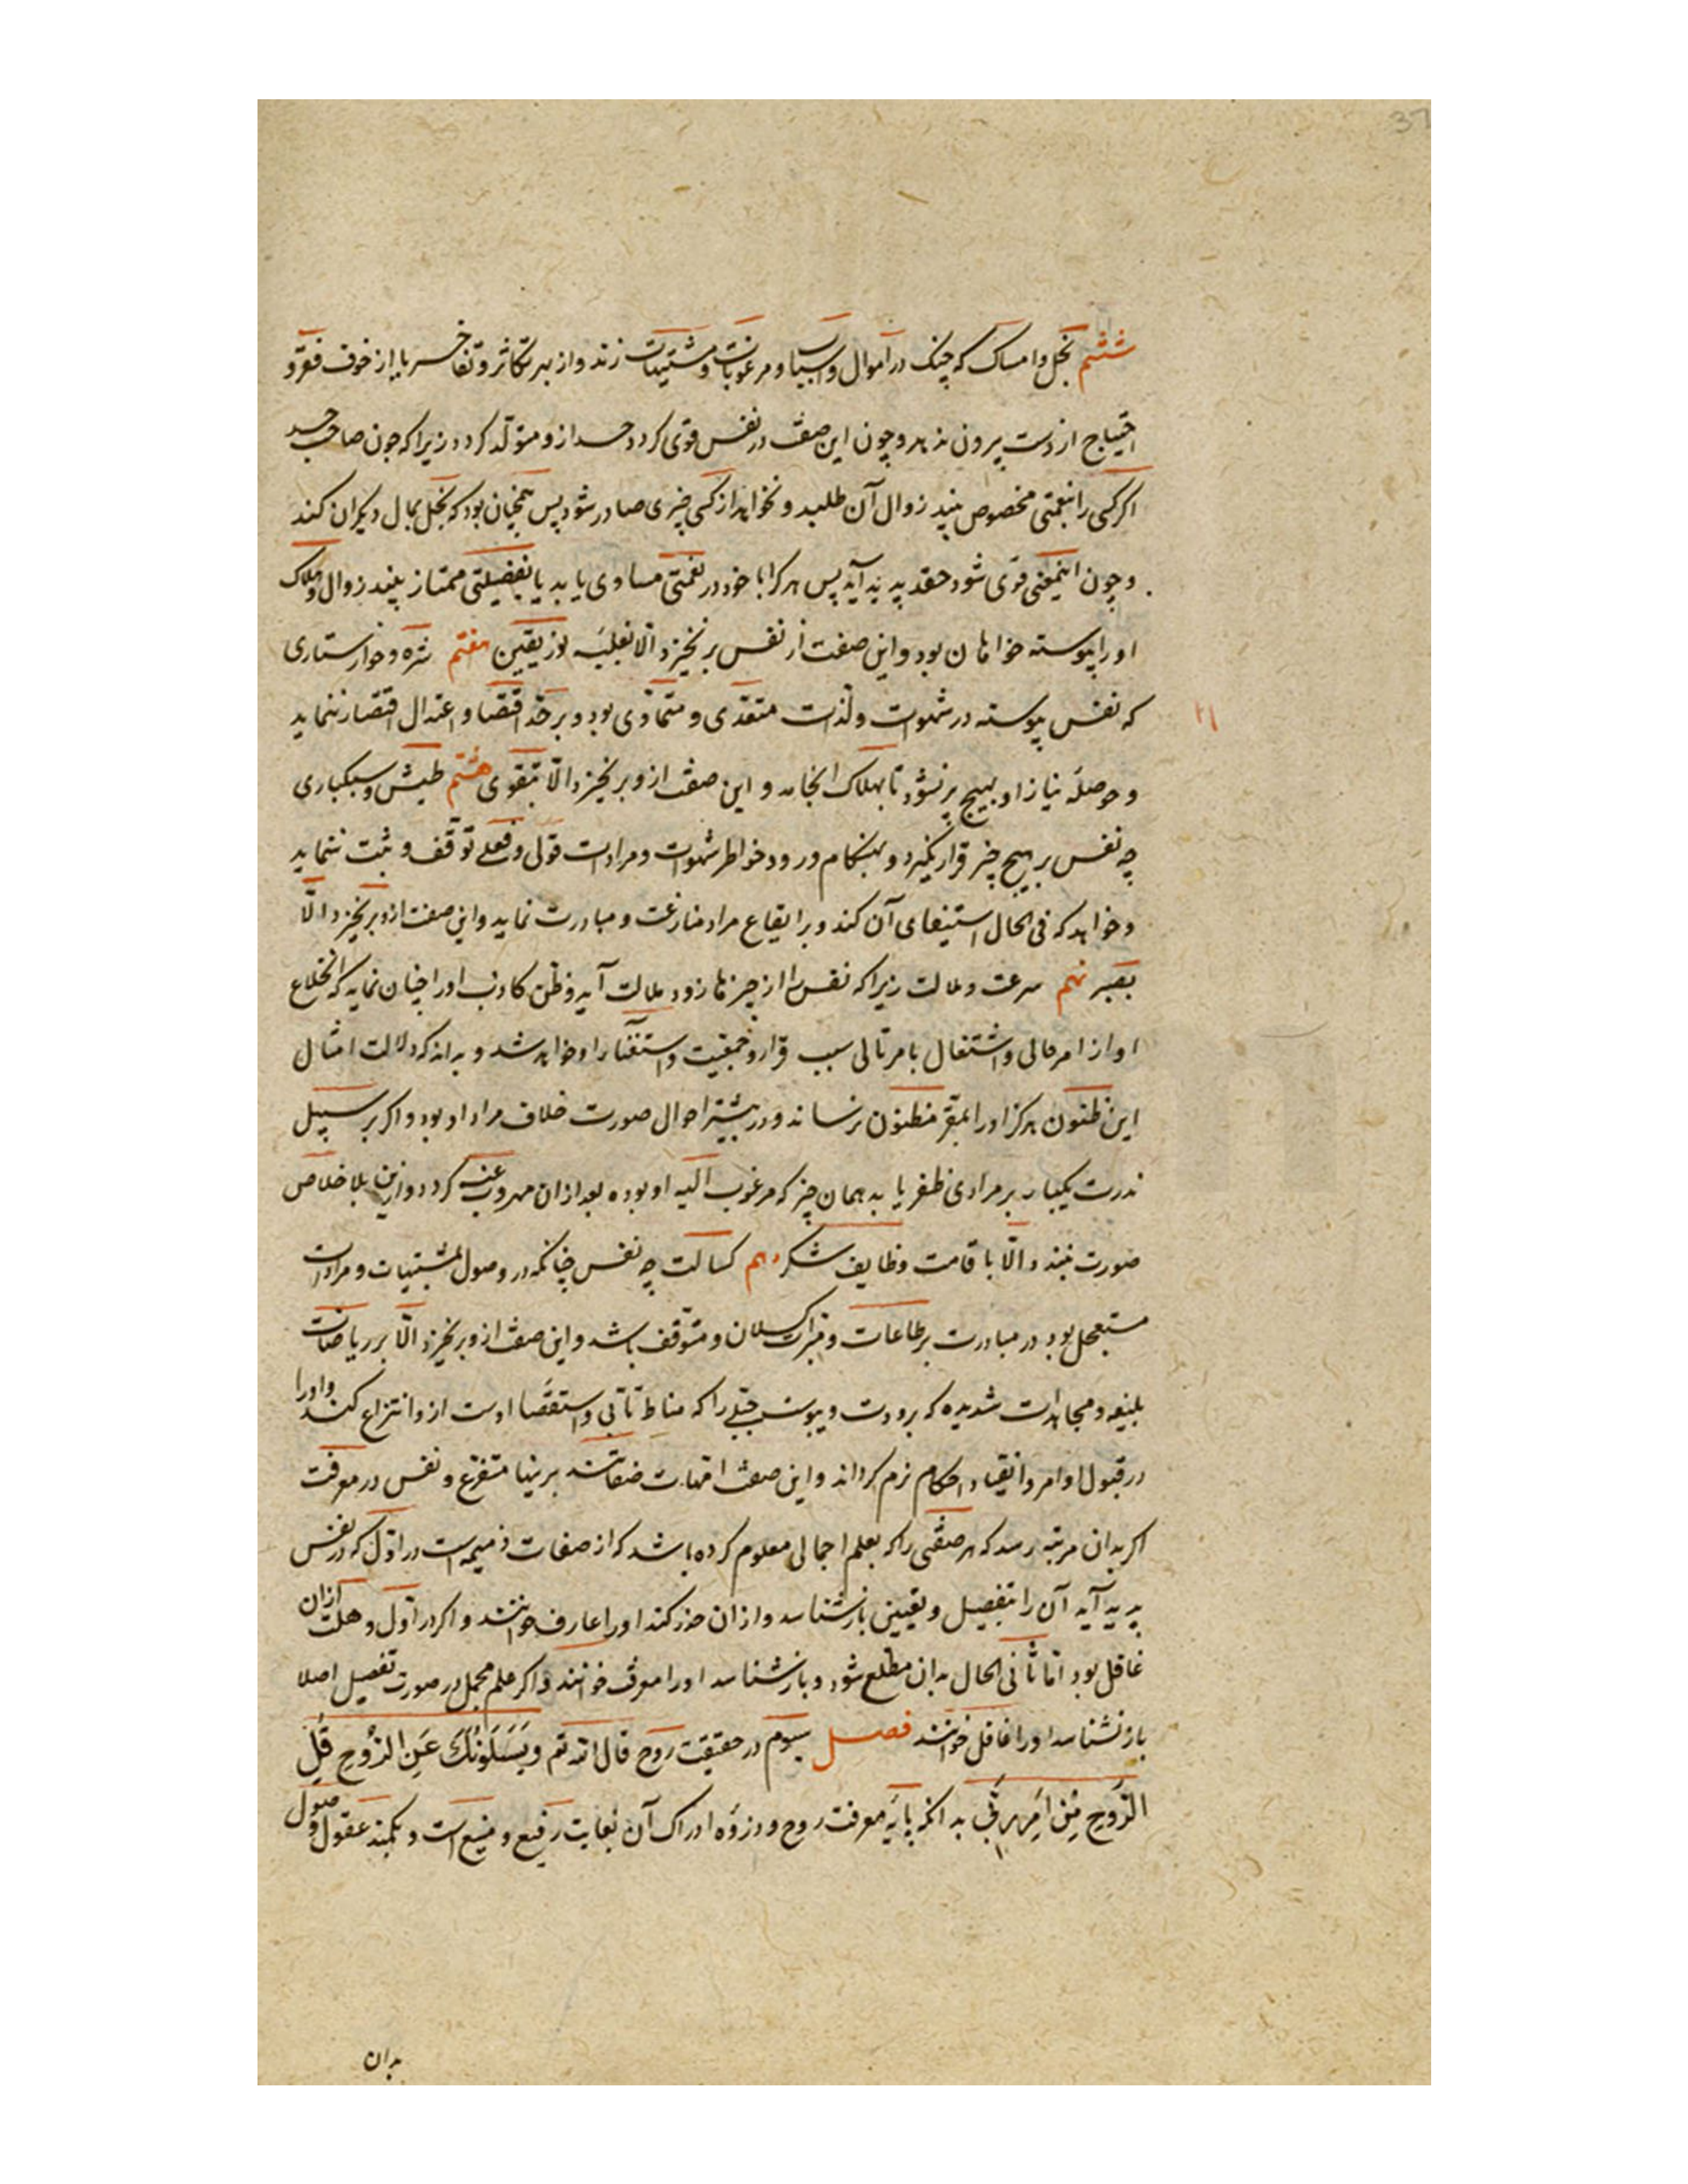 ششم بخل و امساک که چنک در اموال و اسباب و مرغوبات و مشتهیات زند و از بهر تکاثر و تفاخر یا از خوف فقر و
احتیاج از دست بیرون ندهد و چون این صفت در نفس قوی کردد حسد ازو متولد کردد زیرا که چون صاحب حسد
اکر کسی را بنعمتی مخصوص بیند زوال آن طلبد و نخواهد از کسی چیزی صادر شود پس همچنان بود که بخل بمال دیکران کند
و چون اینمعنی قوی شود حقد پدید آید پس هر کرا با خود در نعمتی مساوی یابد یا بفضیلتی ممتاز بیند زوال و هلاک
او را پیوسته خواهان بود و این صفت از نفس برنخیزد الا بغلبهٔ نور یقین هفتم شره و خواستاری
که نفس پیوسته در شهوات و لذات متعدی و متمادی بود و بر حد اقتصاد و اعتدال اقتصار ننماید
و حوصلهٔ نیاز او بهیچ پر نشود تا بهلاک انجامد و این صفت ازو برنخیزد الا بتقوی هشتم طیش و سبکباری
چه نفس بر هیچ چیز قرار نکیرد و بهنکام ورود خواطر شهوات و مرادات قولی و فعلی توقف و تثبت ننماید
و خواهد که فی الحال استیفای آن کند و بر ایقاع مراد منازعت و مبادرت نماید و این صفت ازو برنخیزد الا
بصبر نهم سرعت ملالت زیرا که نفس را از چیزها زود ملالت آید و ظن کاذب او را چنان نماید که انخلاع
او از امر حالی و اشتغال بامر تالی سبب قرار و جمعیت و استغنا را و خواهد شد و بدانکه دلالت امثال
این ظنون هرکز او را بمقر مظنون نرساند و در بیشتر احوال صورت خلاف مراد او بود و اکر بر سبیل
ندرت یکبار بر مرادی ظفر یابد همان چیز که مرغوب الیه او بوده بعد از آن مهروب عنه کردد و ازین بلا خلاص
صورت نبندد الا باقامت وظایف شکر دهم کسالت چه نفس چنانکه در وصول بمشتهیات و مرادات
مستعجل بود در مبادرت بر طاعات و مبرات کسلان و متوقف باشد و این صفت ازو برنخیزد الا بر ریاضات
بلیغه و مجاهدات شدیده که برودت و یبوست جبلی را که مناط تأبی و استعصا اوست ازو انتزاع کند و او را
در قبول اوامر و انقیاد احکام نرم کرداند و این صفت امهات صفاتند برینها متفرع و نفس در معرفت
اکر بدان مرتبه رسد که هر صفتی را که بعلم اجمالی معلوم کرده باشد که از صفات ذمیمه است در اول که در نفس
پدید آید آن را بتفصیل و تعیین باز شناسد و از ان حذر کند او را عارف خوانند و اکر در اول وهلت از ان
غافل بود اما ثانی الحال بدان مطلع شود و باز شناسد او را معرف خوانند و اکر علم مجمل در صورت تفصیل اصلا
باز نشناسد او را غافل خوانند فصل سیوم در حقیقت روح قال الله تع ویسئلونک عن الروح قل
الروح من امر ربی بدانکه پایهٔ معرفت روح و ذروهٔ ادراک آن بغایت رفیع و منیع است و بکمند عقول وصول
بدان